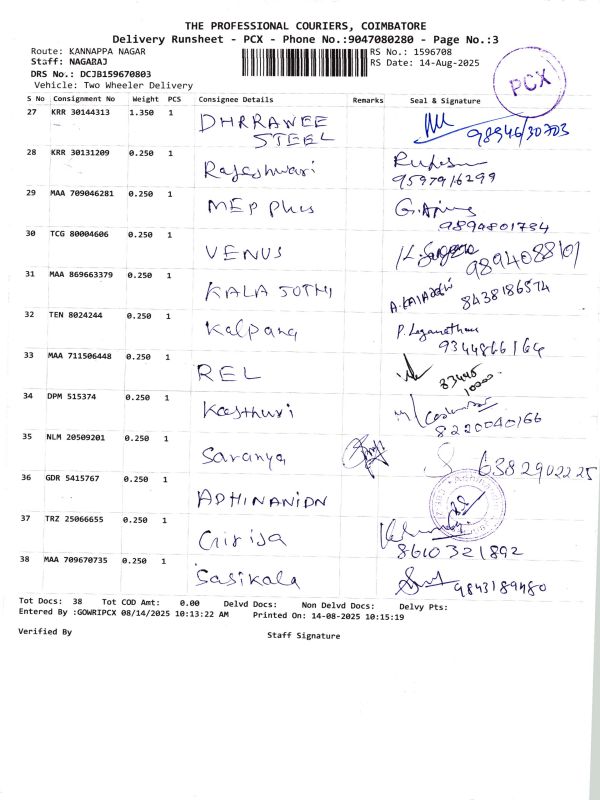 THE PROFESSIONAL COURIERS, COIMBATORE
Delivery Runsheet - PCX - Phone No.:9047080280 - Page No.:3
Route: KANNAPPA NAGAR RS No.: 1596708
Staff: NAGARAJ RS Date: 14-Aug-2025
DRS No.: DCJB159670803
Vehicle: Two Wheeler Delivery
PCX
S No Consignment No Weight PCS Consignee Details Remarks Seal & Signature
27 KRR 30144313 1.350 1 DHRRAWEE
STEEL 98946/30703
28 KRR 30131209 0.250 1 Rajeshwari
9597916299
29 MAA 709046281 0.250 1 MEP plus
9894801734
30 TCG 80004606 0.250 1 VENUS
9894088101
31 MAA 869663379 0.250 1 KALA JOTHI
8438186574
32 TEN 8024244 0.250 1 Kalpana
9344866164
33 MAA 711506448 0.250 1 REL
83445
10000
34 DPM 515374 0.250 1 Kasthuri
8220040166
35 NLM 20509201 0.250 1 Saranya 6382902225
36 GDR 5415767 0.250 1 ADHINANION
37 TRZ 25066655 0.250 1 Girija
8610321892
38 MAA 709670735 0.250 1 Sasikala 9843189480
Tot Docs: 38 Tot COD Amt: 0.00 Delvd Docs: Non Delvd Docs: Delvy Pts:
Entered By :GOWRIPCX 08/14/2025 10:13:22 AM Printed On: 14-08-2025 10:15:19
Verified By Staff Signature